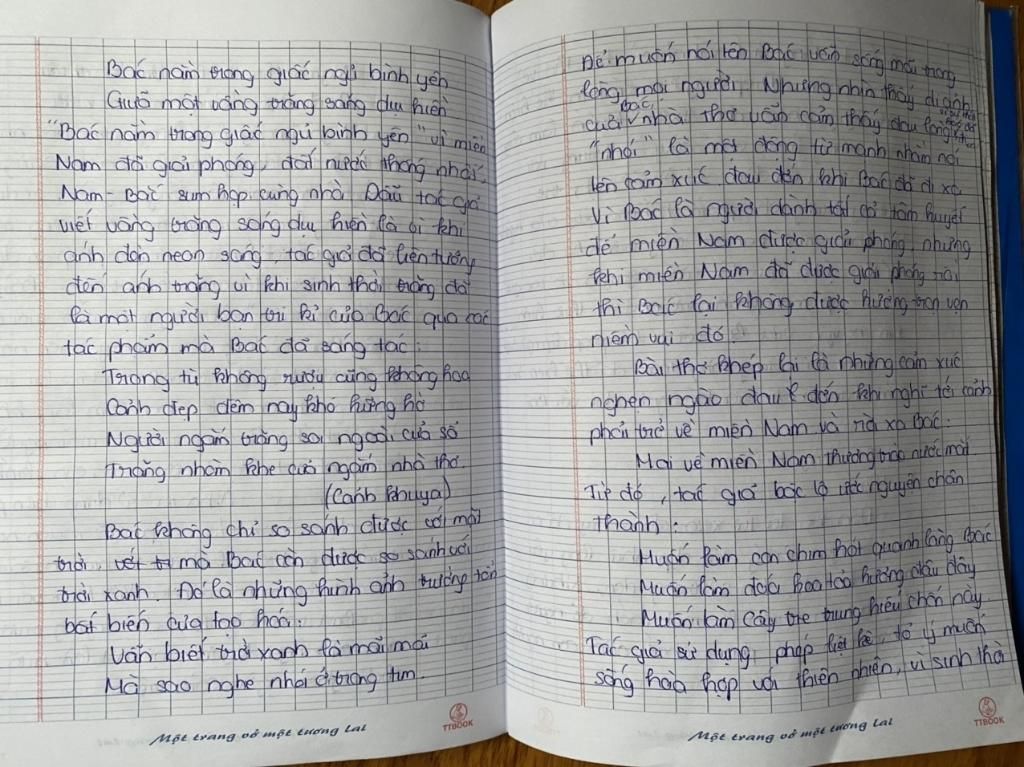 Bác nằm trong giấc ngủ bình yên
Giữa một vầng trăng sáng dịu hiền
"Bác nằm trong giấc ngủ bình yên" vì miền
Nam đã giải phóng, đất nước thống nhất,
Nam - Bắc sum họp cung nhà. Dẫu tác giả
viết vầng trăng sáng dịu hiền là vì khi
ánh đèn neon sáng, tác giả đã liên tưởng
đến ánh trăng vì khi sinh thời trăng đã
là một người bạn tri kỉ của Bác qua các
tác phẩm mà Bác đã sáng tác:
Trong tù không rượu cũng không hoa
Cảnh đẹp đêm nay khó hững hờ
Người ngắm trăng soi ngoài cửa sổ
Trăng nhòm khe cửa ngắm nhà thơ.
(Cảnh khuya)
Bác không chỉ so sánh được với mặt
trời, mà Bác còn được so sánh với
trời xanh. Đó là những hình ảnh trường tồn
bất biến của tạo hoá:
Vẫn biết trời xanh là mãi mãi
Mà sao nghe nhói ở trong tim.
Để muốn nói lên Bác vẫn sống mãi trong
lòng mọi người. Nhưng nhìn thấy di ảnh
của Bác nhà thơ vẫn cảm thấy đau lòng
"nhói" là một động từ mạnh nhằm nói
lên cảm xúc đau đớn khi Bác đã đi xa
Vì Bác là người dành tất cả tâm huyết
để miền Nam được giải phóng nhưng
khi miền Nam đã được giải phóng rồi
thì Bác lại không được hưởng trọn vẹn
niềm vui đó.
Bài thơ khép lại là những cảm xúc
nghẹn ngào đau đớn khi nghĩ tới cảnh
phải trở về miền Nam và rời xa Bác:
Mai về miền Nam thương trào nước mắt
Từ đó, tác giả bộc lộ ước nguyện chân
thành:
Muốn làm con chim hót quanh lăng Bác
Muốn làm đoá hoa toả hương đâu đây
Muốn làm cây tre trung hiếu chốn này
Tác giả sử dụng phép liệt kê, tỏ ý muốn
sống hoà hợp với thiên nhiên, vì sinh thời
Một trang vở một tương lai
TTBOOK
Một trang vở một tương lai
TTBOOK